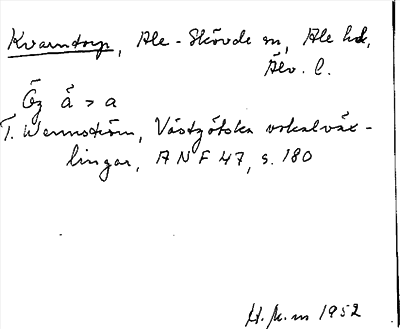 Kvarntorp, Ale-Skövde sn, Ale hd,
Älv. l.
Ög å > a
T. Wennström, Västgötska vokalväx-
lingar, ANF 47, s. 180
1952